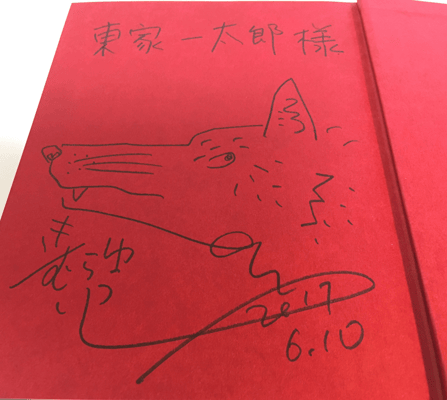 東家一太郎様
きむらゆういち
2017
6.10